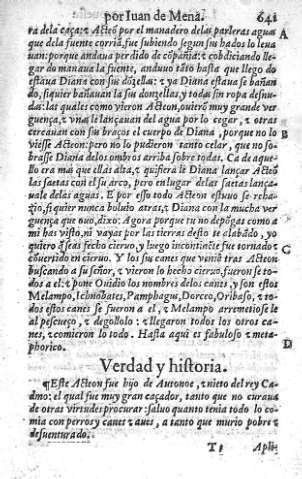 por Iuan de Menã. 641
ra dela caça: ⁊ Acteõ por el manadero delas parleras aguas
que dela fuente corriã, fue subiendo segun sus hados lo leua
uan: porque andaua perdido de cõpañia: ⁊ cobdiciando lle-
gar do manaua la fuente, anduuo tãto hasta que llego do
estaua Diana con sus dõzellas: ⁊ ya Diana estaua se bañan
do, siquier bañauan la sus donzellas, y todas sin ropa desnu-
das: las quales como vieron Acteon, ouierõ muy grande ver
guença, ⁊ vnas le lançauan del agua por lo cegar, ⁊ otras
cercauan con sus braços el cuerpo de Diana, porque no lo
viesse Acteon: pero no lo pudieron tanto celar, que no so-
brasse Diana delos ombros arriba sobre todas. Ca de aque-
llo era mas que ellas alta, ⁊ quisiera le Diana lançar Acteõ
las saetas con el su arco, pero en lugar delas saetas lança-
uale delas aguas. E por esso todo Acteon estuuo se reba-
zio, si quier nunca boluio atras, ⁊ Diana con la mucha ver
guença que ouo, dixo: Agora porque tu no depõgas como a
mi has visto, ni vayas por las tierras desto te alabãdo, yo
quiero q̃ seas fecho cieruo, y luego incontinẽte fue tornado ⁊
cõuertido en cieruo. Y los sus canes que veniã tras Acteon
buscando a su señor, ⁊ vieron lo hecho cieruo, fueron se to-
dos a el: ⁊ pone Ouidio los nombres delos canes, y son estos
Melampo, Ichnobates, Pamphagus, Dorceo, Oribaso, ⁊ to-
dos estos canes se fueron a el, ⁊ Melampo arremetiose le
al pescueço, ⁊ degollolo: ⁊ llegaron todos los otros ca-
nes, ⁊ comieron lo todo. Hasta aqui es fabuloso ⁊ meta-
phorico.
Verdad y historia.
¶Este Acteon fue hijo de Autonoe, ⁊ nieto del rey Ca-
dmo: el qual fue muy gran caçador, tanto que no curaua
de otras virtudes procurar: saluo quanto tenia todo lo co-
mia con perros y canes ⁊ aues, a tanto que murio pobre ⁊
desuenturado.
T Apli-
A
B
C
D